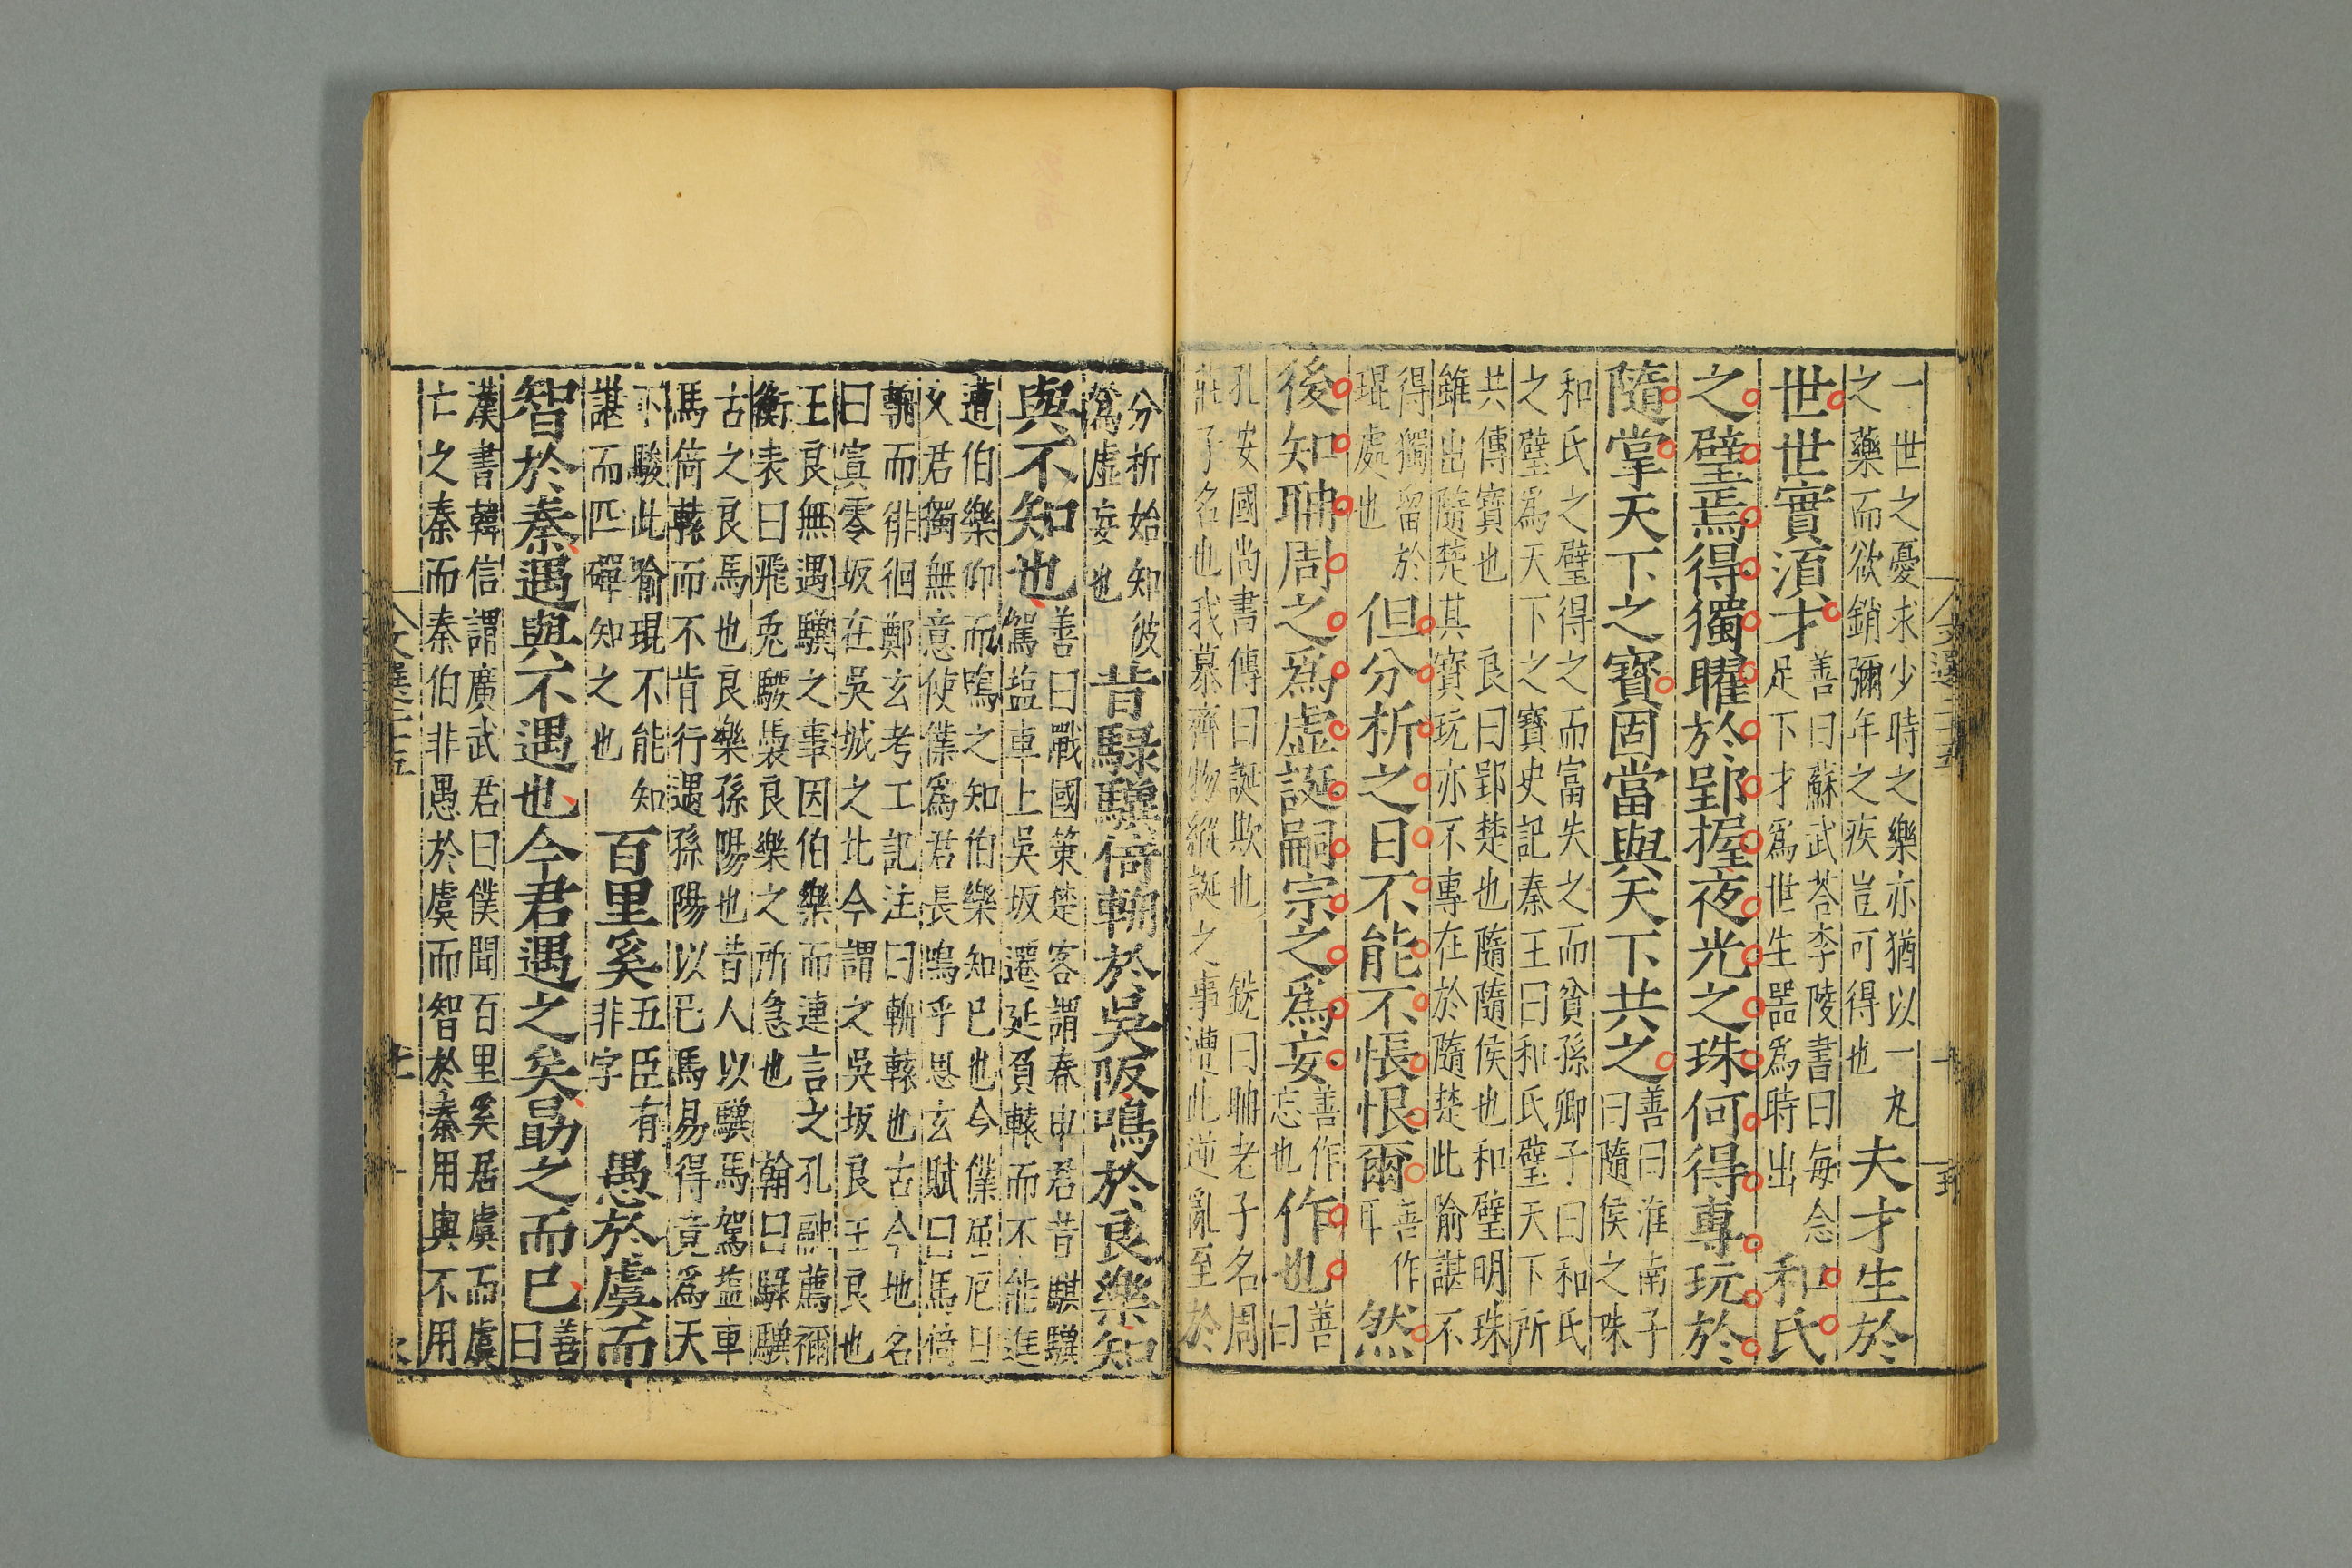 一世之憂求少時之樂亦猶以一丸
之藥而欲銷彌年之疾豈可得也
夫才生於
世世實須才
善曰蘇武荅李陵書曰每念
足下才爲世生噐爲時出
和氏
之璧焉得獨曜於郢握夜光之珠何得專玩於
隨掌天下之寳固當與天下共之
善曰淮南子
曰隨侯之珠
和氏之璧得之而富失之而貧孫卿子曰和氏
之璧爲天下之寳史記秦王曰和氏璧天下所
共傳寳也 良曰郢楚也隨隨侯也和璧明珠
雖出隨楚其寳玩亦不專在於隨楚此喻諶不
得獨留於
琨處也
但分析之日不能不悵恨爾
善作
耳
然
後知聃周之爲虛誕嗣宗之爲妄
善作
忘也
作也
善
曰
孔安國尚書傳曰誕欺也 銑曰聃老子名周
莊子名也我慕齊物縱誕之事遭此逆亂至於
分析始知彼
爲虛妄也
昔騄驥倚輈於吳阪鳴於良樂知
與不知也
善曰戰國策楚客謂春申君昔騏驥
駕塩車上吳坂遷延負轅而不能進
遭伯樂仰而鳴之知伯樂知已也今僕屈厄日
文君獨無意使僕爲君長鳴乎思玄賦曰馬倚
輈而徘徊鄭玄考工記注曰輈轅也古今地名
曰寘零坂在吳城之北今謂之吳坂良王良也
王良無遇驥之事因伯樂而連言之孔融薦禰
衡表曰飛兎騕褭良樂之所急也 翰曰騄驥
古之良馬也良樂孫陽也昔人以驥馬駕塩車
馬倚轅而不肯行遇孫陽以已馬易得竟爲天
下駿此喻琨不能知
諶而匹磾知之也
百里奚
五臣有
非字
愚於虞而
智於秦遇與不遇也今君遇之矣勗之而已
善
曰
漢書韓信謂廣武君曰僕聞百里奚居虞而虞
亡之秦而秦伯非愚於虞而智於秦用與不用